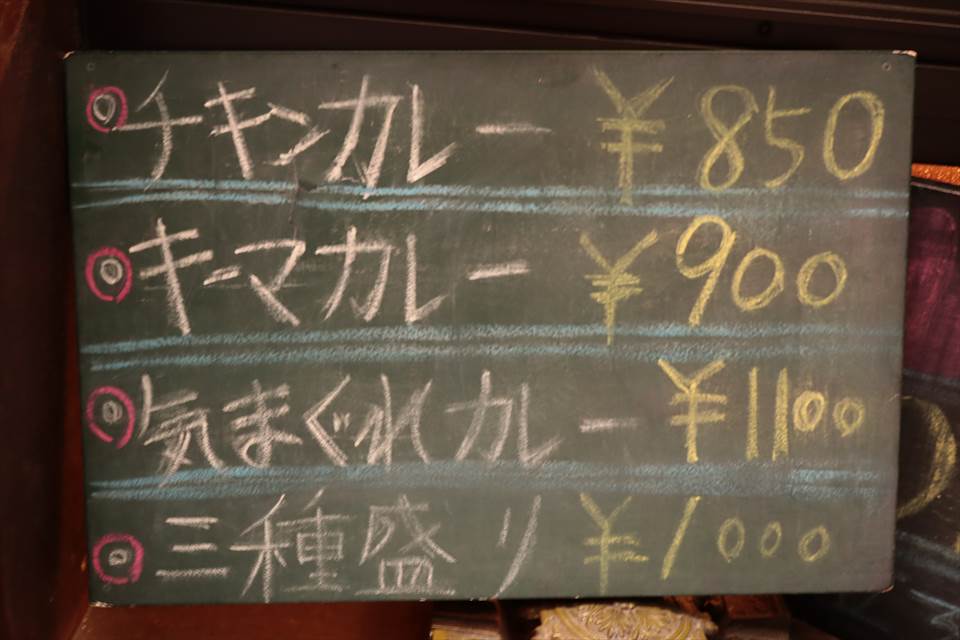 ◎チキンカレー ¥850
◎キーマカレー ¥900
◎気まぐれカレー ¥1100
◎三種盛り ¥1000